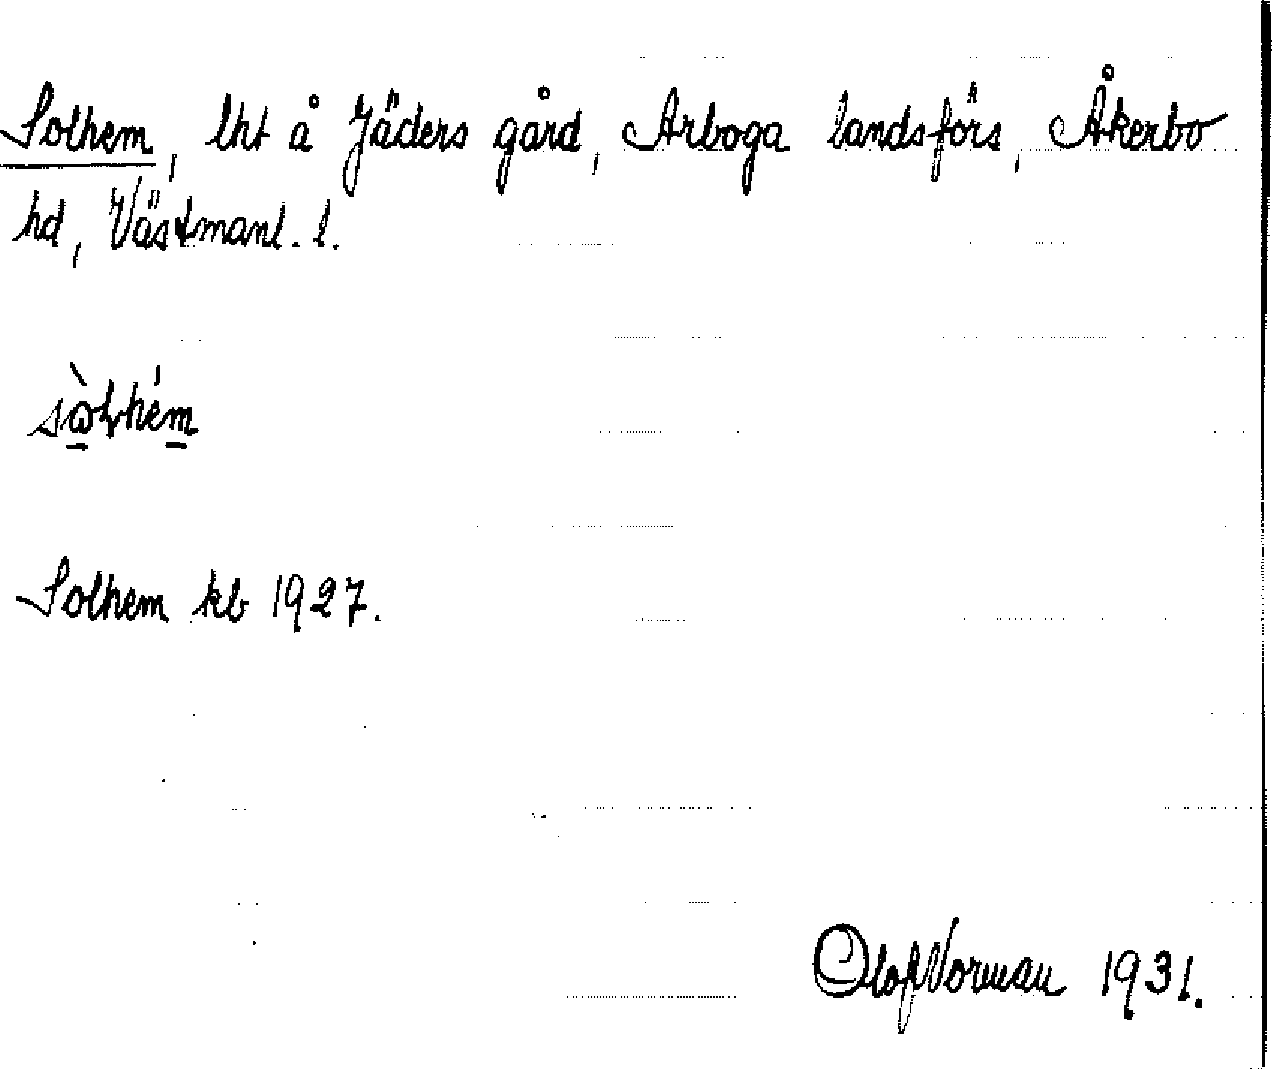 Solhem, lht å Jäders gård, Arboga landsförs, Åkerbo
hd, Västmanl. l.
Solhem kb 1927.
Olof Norman 1931.